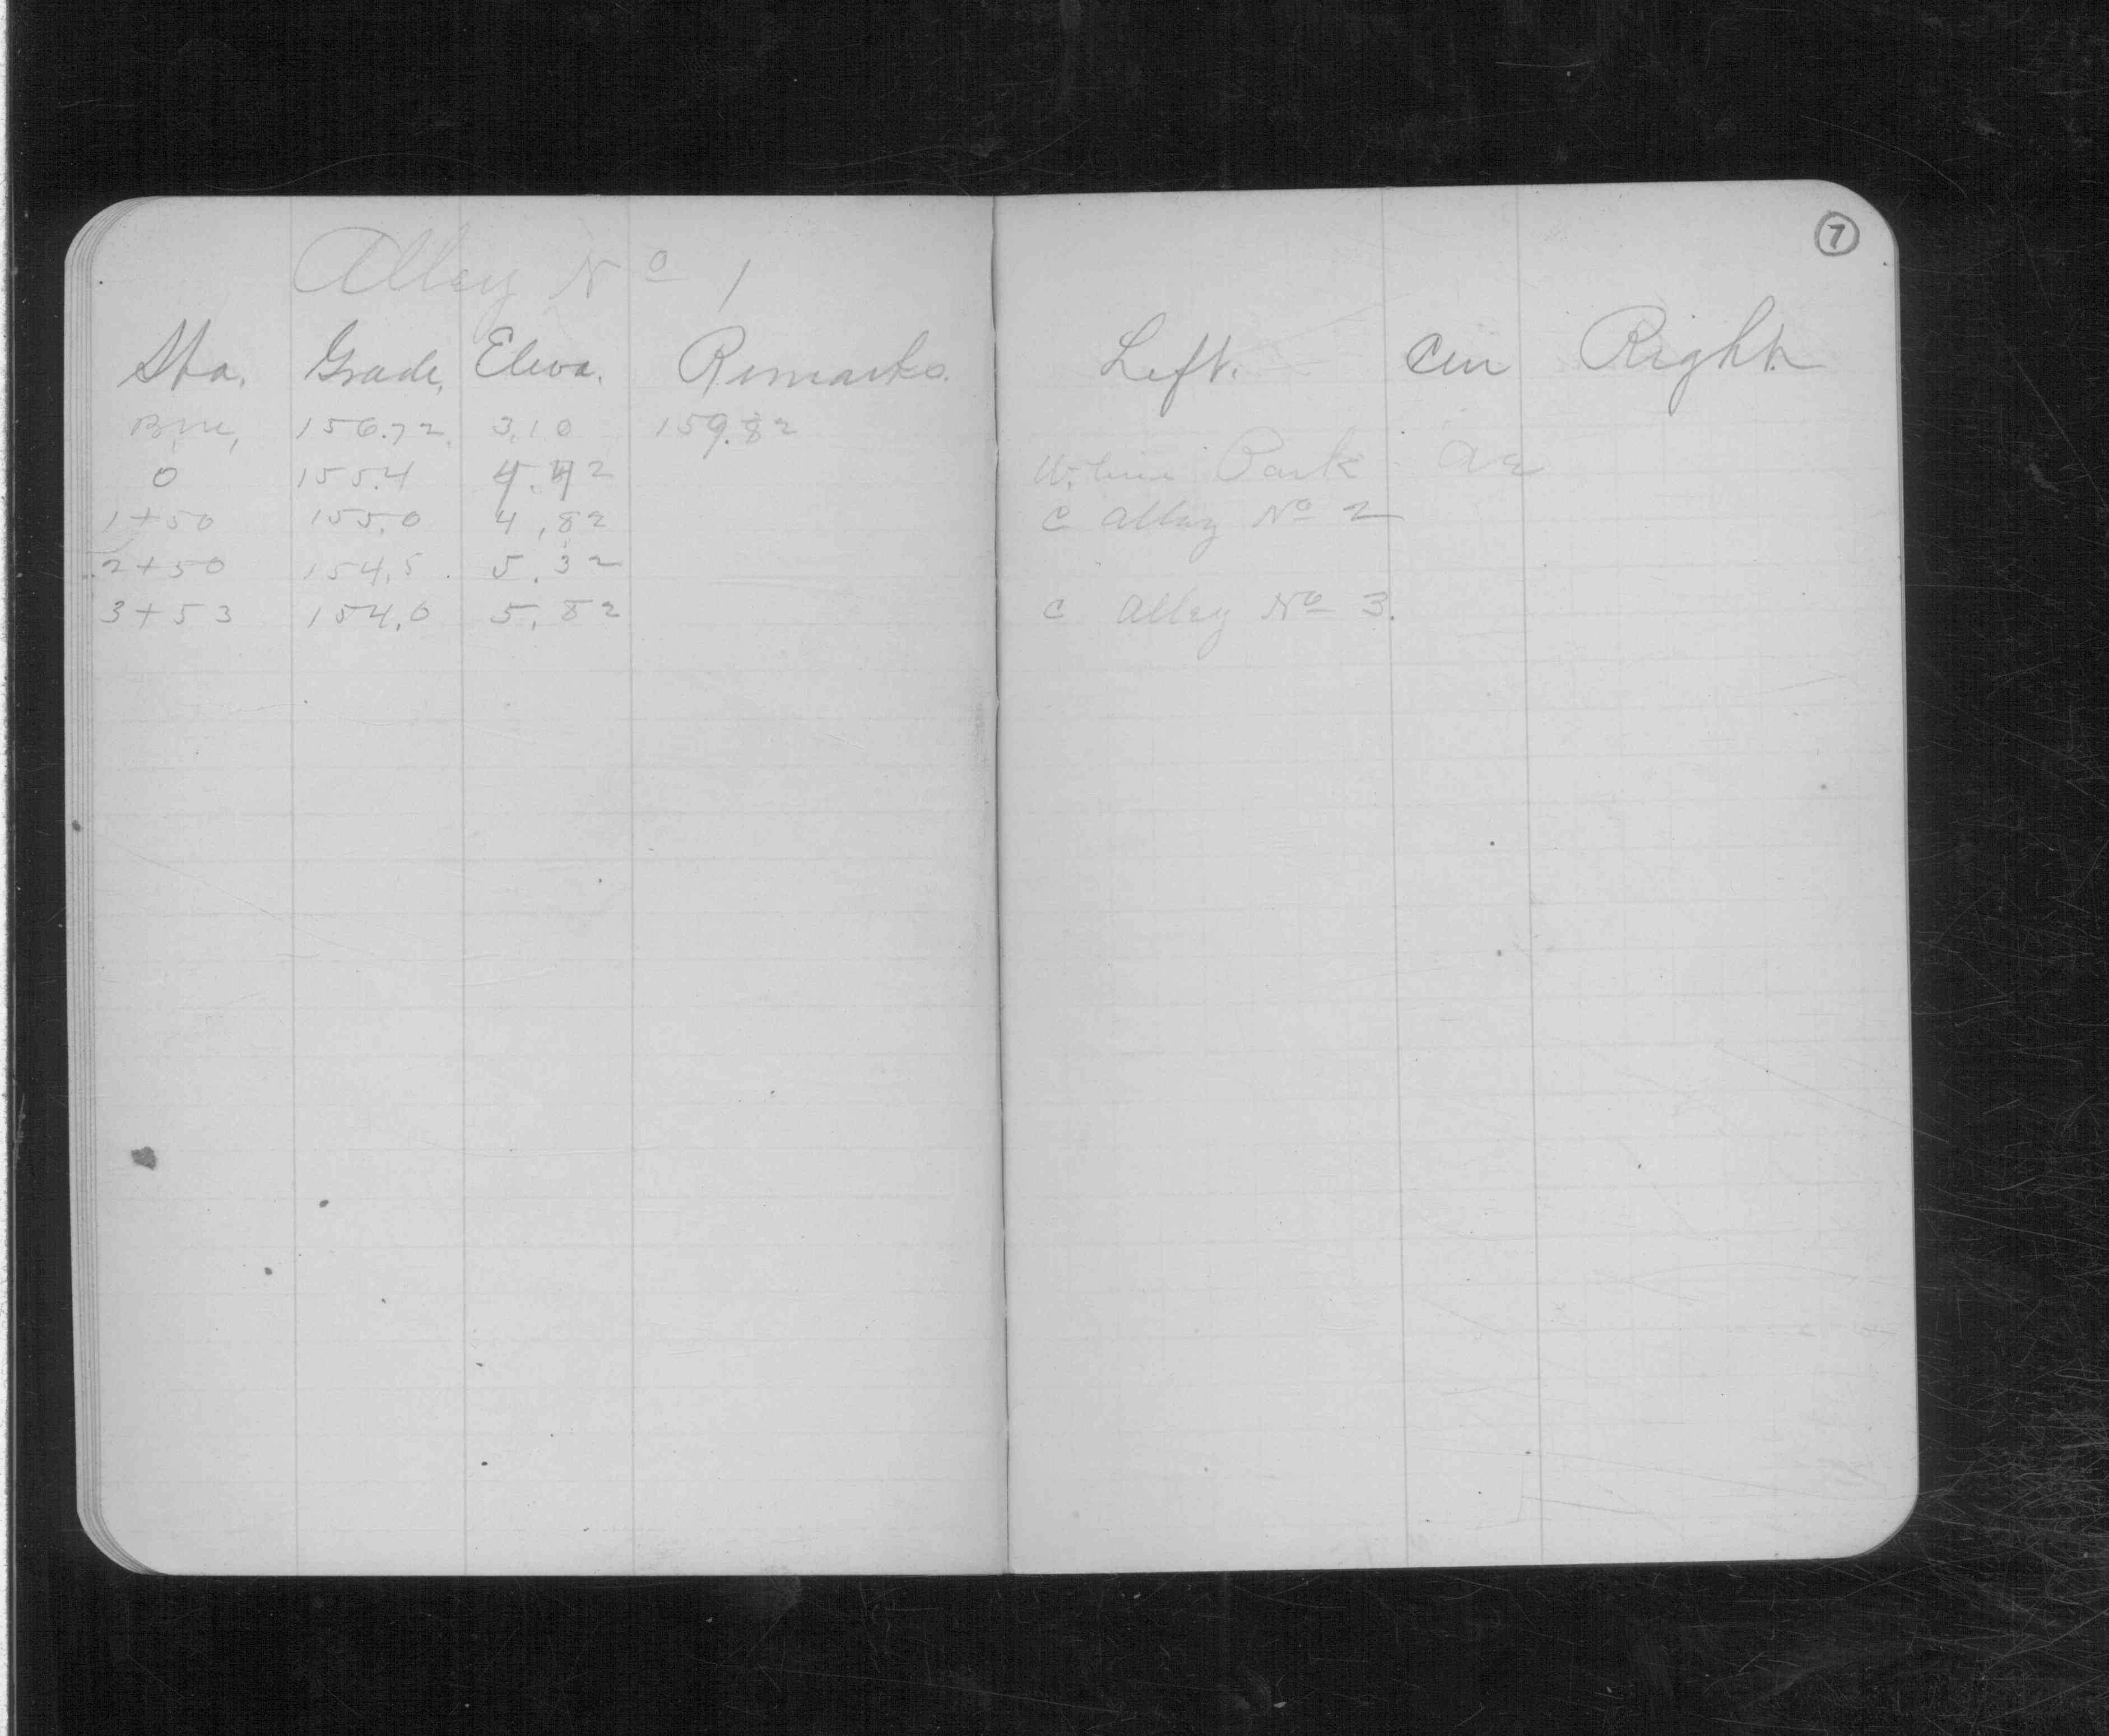 Alley No 1
7
Sta. Grade, Eleva. Remarks. Left. Cen Right.
B.M., 156.72 3.10 159.82
0 155.4 4.42 W. line Park Av
1+50 155.0 4.82 C Alley No 2
2+50 154.5 5.32
3+53 154.0 5.82 C Alley No 3.